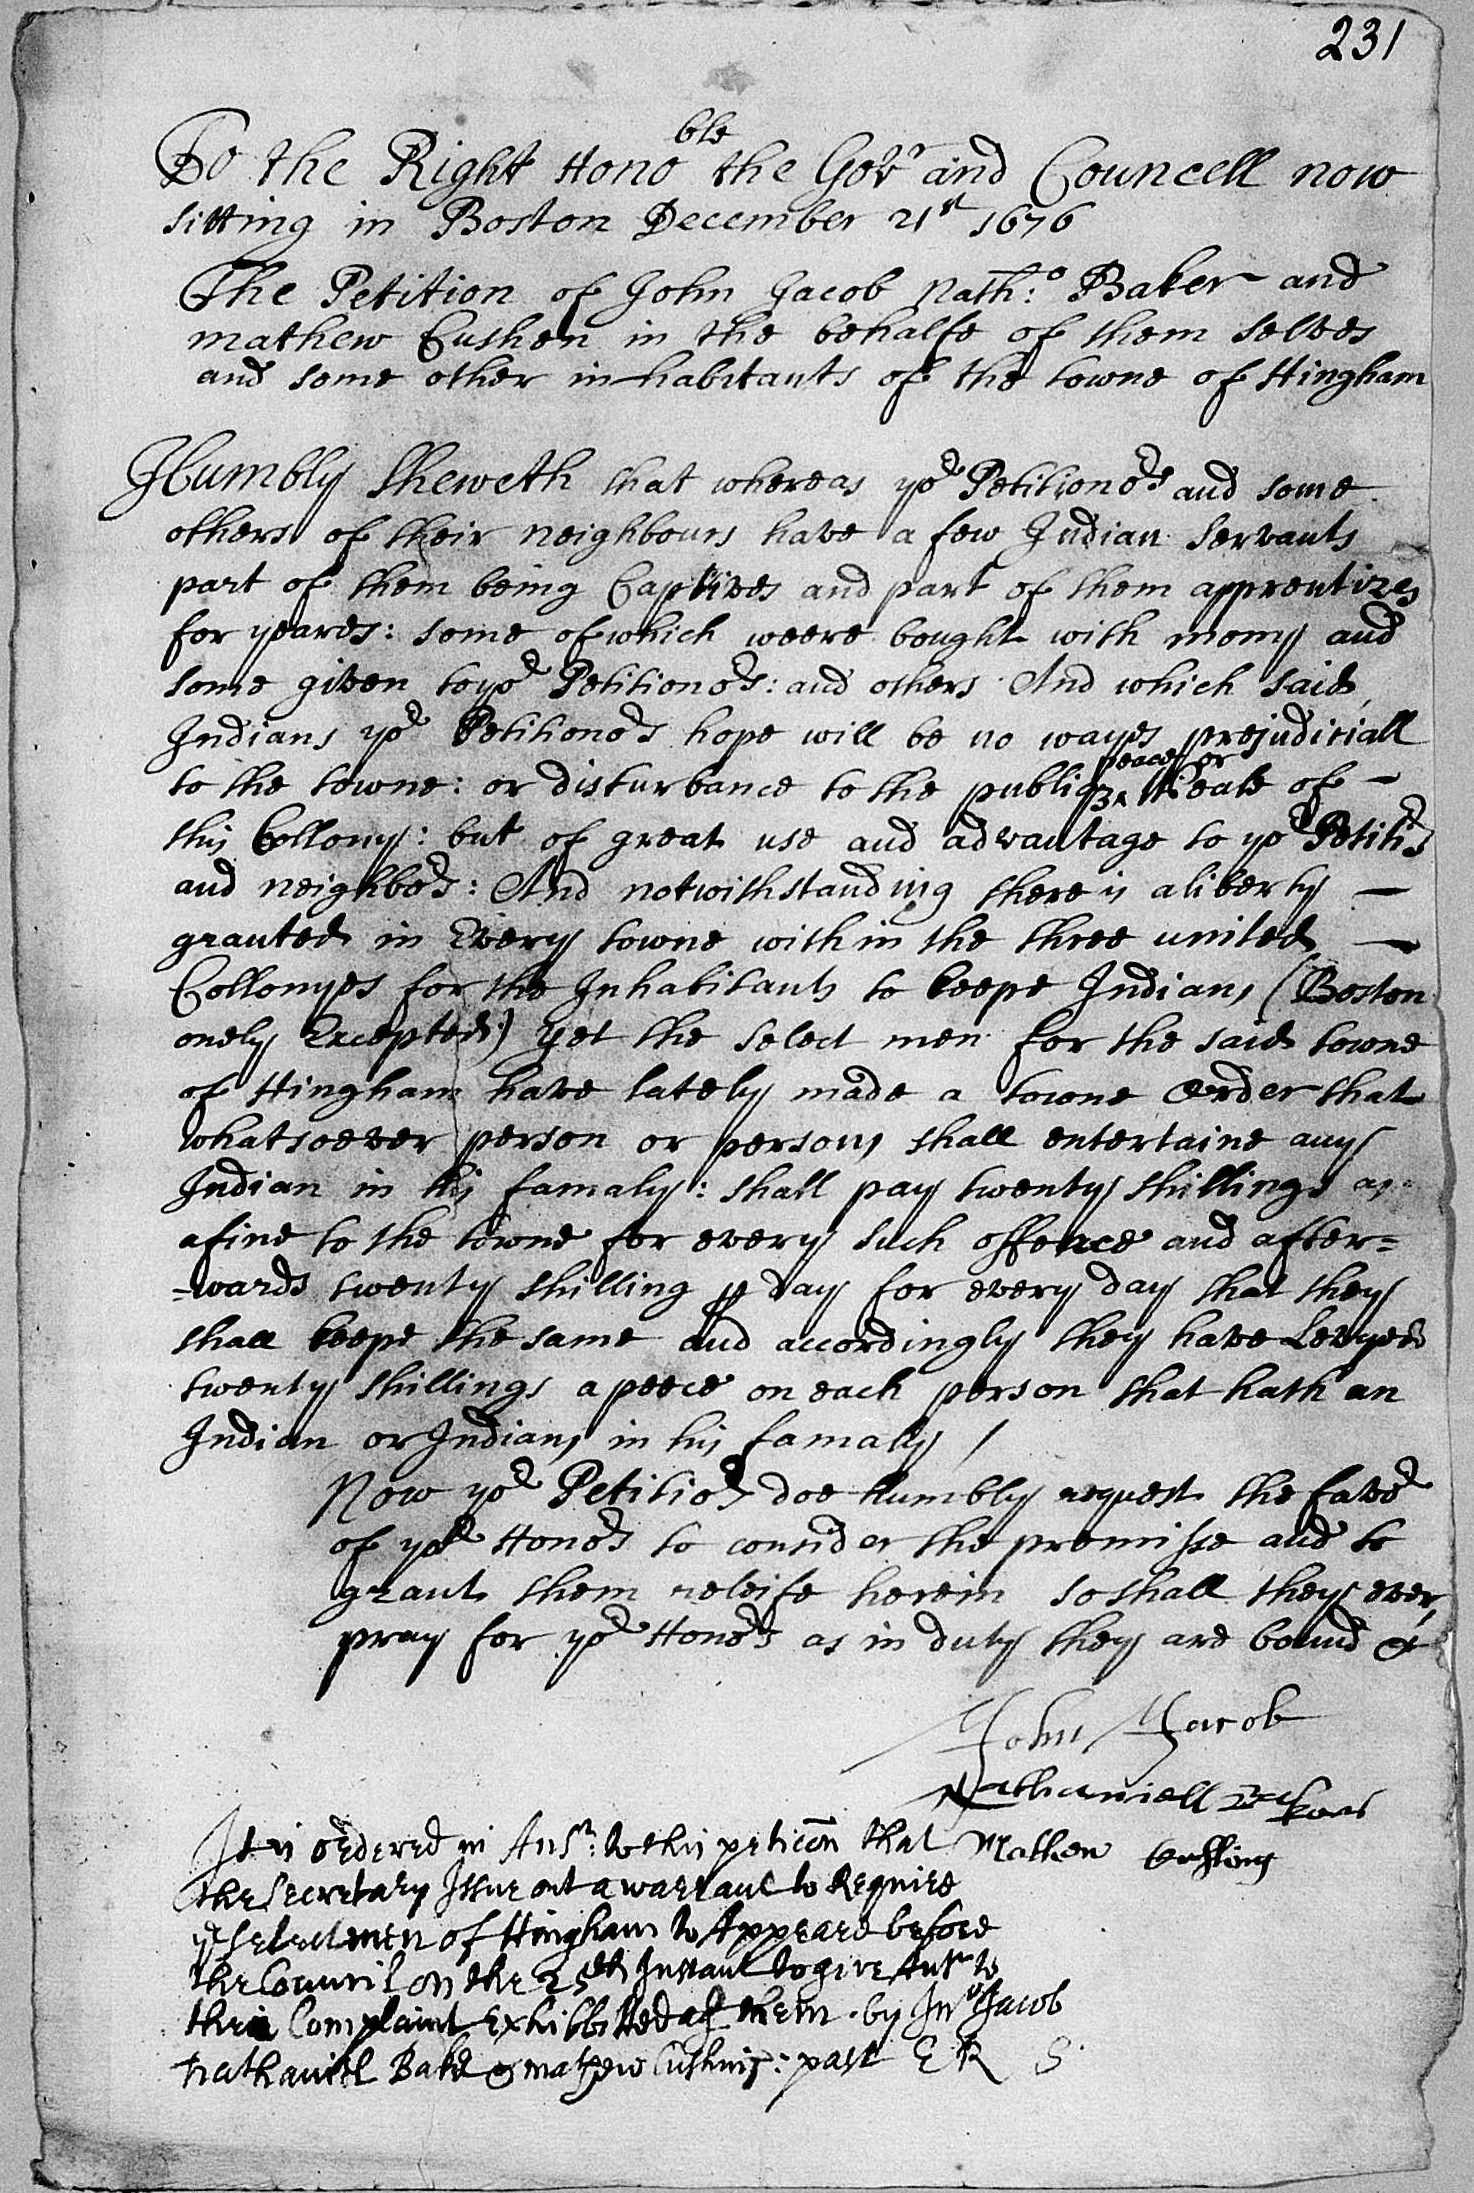 231
To the Right Hono ble the Govr and Councell now
sitting in Boston December 21st 1676
The Petition of John Jacob Nath:o Baker and
mathew Cushen in the behalfe of them selves
and some other inhabitants of the towne of Hingham
Humbly Sheweth that whereas yor Petitionors and some
others of their neighbours have a few Indian servants
part of them being Captives and part of them apprentizes
for yeares: some of which weere bought with mony and
some given to yor Petitionors: and others And which said
Indians yor Petitionors hope will be no wayes prejudiciall
to the towne: or disturbance to the publiq peace or Weale of
this Collony: but of great use and advantage to yor Petitirs
and neighbors: And notwithstanding there is a liberty
granted in Every towne within the three united
Collonyes for the Inhabitants to keepe Indians (Boston
onely Excepted) yet the select men for the said towne
of Hingham have lately made a towne Order that
whatsoever person or persons shall entertaine any
Indian in his famaly: shall pay twenty shillings as
a fine to the towne for every such offence and after=
=wards twenty shilling p day for every day that they
shall keepe the same and accordingly they have Levyed
twenty shillings a peece on each person that hath an
Indian or Indians in his famally /
Now yor Petitiors doe humbly request the favor
of yor Honors to consider the premisse and to
grant them releife herein so shall they ever
pray for yor Honors as in duty they are bound &
John Jacob
Nathaniell Baker
Mathew Cushing
It is ordered in Ansr: to this peticon that
the Secretary Issue out a warrant to Require
ye selectmen of Hingham to Appeare before
the Council on the 25th Instant to give Ansr to
their Complaint Exhibbitted agt them by Jno Jacob
Nathaniel Baker & mathew Cushing: past E R S